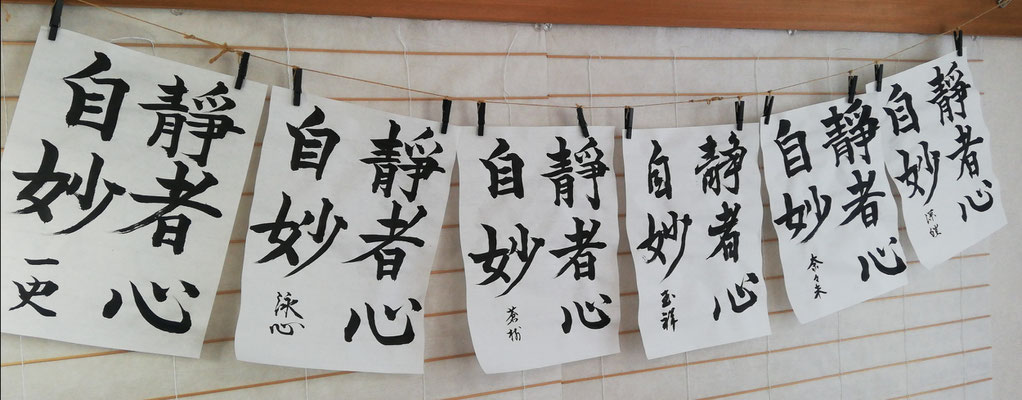 靜者心
自妙
靜者心
自妙
泳心
靜者心
自妙
靜者心
自妙
玉祥
靜者心
自妙
奈々未
靜者心
自妙